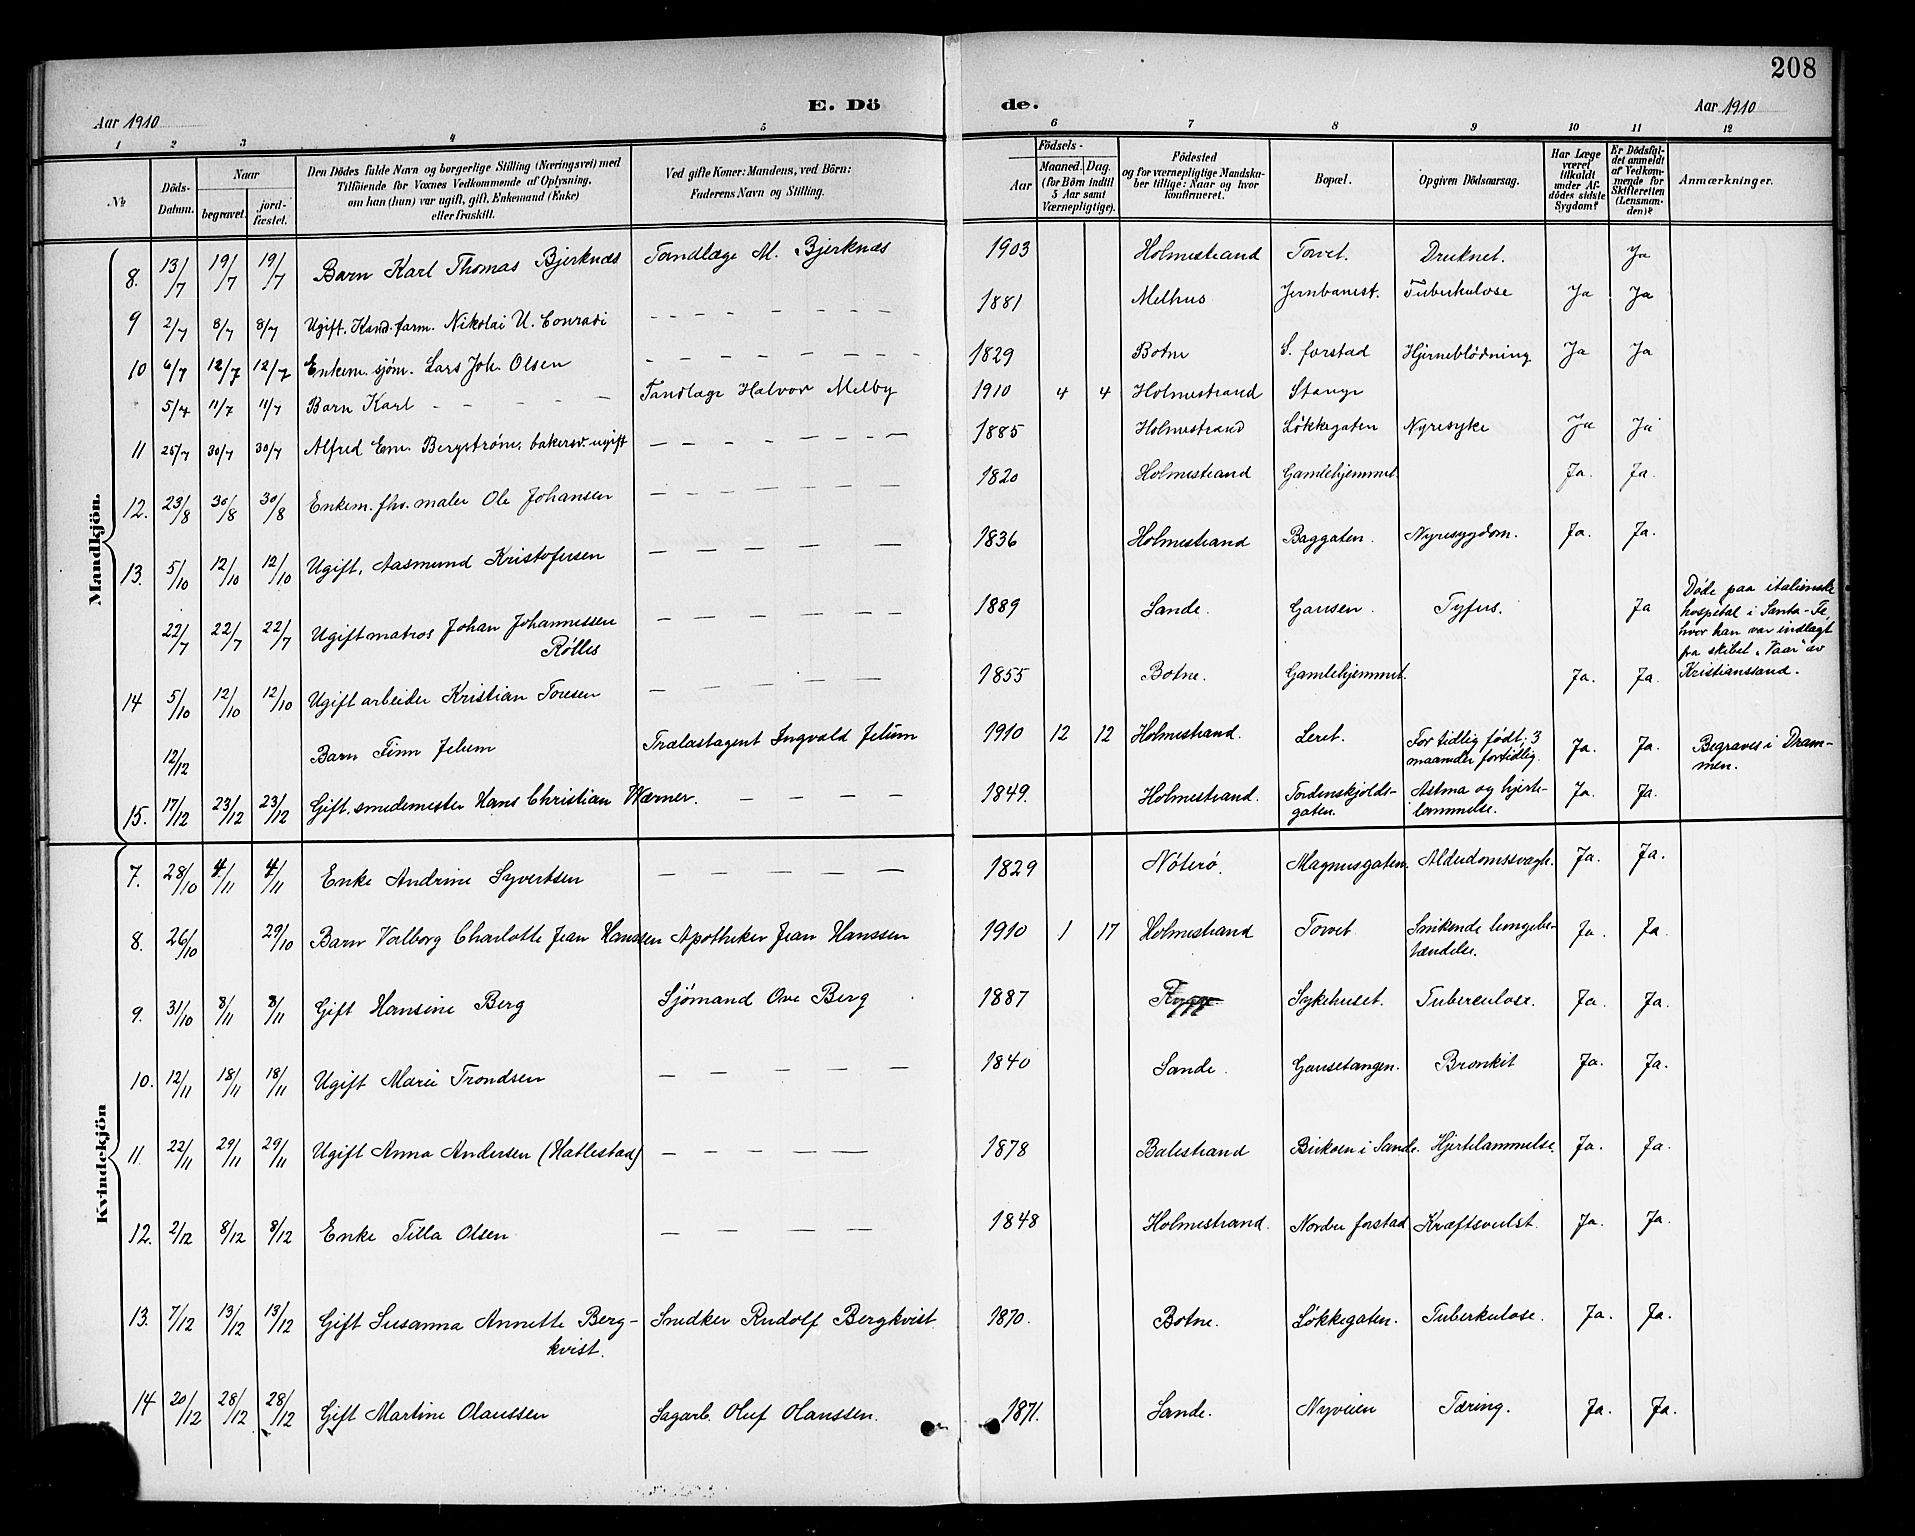 208
E. Dö de.
Aar 1910 Aar 1910
1 2 3 4 5 6 7 8 9 10 11 12
№
Döds-Datum.
Naar
begravet. jordfæstet.
Den Dödes fulde Navn og borgerlige Stilling (Næringsvei) med
Tilföiende for Voxnes Vedkommende af Oplysning,
om han (hun) var ugift, gift, Enkemand (Enke)
eller fraskilt.
Ved gifte Koner: Mandens, ved Börn:
Faderens Navn og Stilling.
Födsels-
Aar Maaned. Dag.
(for Börn indtil
5 Aar samt
Værnepligtige).
Födested
og for værnepligtige Mandskaber tillige: Naar og hvor
konfirmeret.
Bopæl.
Opgiven Dödsaarsag.
Har Læge
været
tilkaldt
under Afdödes sidste
Sygdom?
Er Dödsfaldet anmeldt
af Vedkommende for
Skifteretten
(Lensmanden)?
Anmærkninger.
Mandkjön.
8. 13/7 19/7 19/7 Barn Karl Thomas Bjerknæs Tandlæge M. Bjerknæs 1903 Holmestrand Torvet. Druknet. Ja
9 2/7 8/7 8/7 Ugift. Kand. farm. Nikolai U. Conradi – – – – – – 1881 Melhus Jernbanest. Tuberkulose Ja Ja
10 6/7 12/7 12/7 Enkem. sjøm. Lars Joh. Olsen – – – – – – – – 1829 Botne S. forstad Hjerneblödning Ja Ja
5/4 11/7 11/7 Barn Karl – – – – – Tandlæge Halvor Melby 1910 4 4 Holmestrand Stange
11 25/7 30/7 30/7 Alfred Em. Bergstrøm, bakersv. ugift – – – – – – – 1885 Holmestrand Løkkegaten Nyresyke Ja Ja
12. 23/8 30/8 30/8 Enkem. fhv. maler Ole Johansen – – – – – – 1820 Holmestrand Gamlehjemmet. Ja. Ja.
13. 5/10 12/10 12/10 Ugift, Aasmund Kristofersen – – – – – 1836 Holmestrand Baggaten. Nyresygdom. Ja. Ja.
22/7 22/7 22/7 Ugift matros Johan Johannessen
Rölles – – – – – – 1889 Sande. Gausen. Tyfus. Ja Døde paa italienske
hospital i Santa-Fe,
hvor han var indlagt
fra skibet "Vaar" av
Kristianssand.
14 5/10 12/10 12/10 Ugift arbeider Kristian Toresen – – – – – – 1855 Botne. Gamlehjemmet. Ja. Ja.
12/12 Barn Finn Jelum Trælastagent Ingvald Jelum 1910 12 12 Holmestrand. Leret. For tidlig født; 3
maaneder fortidlig. Ja. Ja. Begraves i Drammen.
15. 17/12 23/12 23/12 Gift. smedemester Hans Christian Wærner. – – – – 1849. Holmestrand. Tordenskjoldsgaten. Astma og hjertelammelse. Ja. Ja.
Kvindekjön
7. 28/10 4/11 4/11 Enke Andrine Syvertsen – – – – – – 1829 Nöterö. Magnusgaten. Alderdomssvagh. Ja. Ja.
8. 26/10 29/10 Barn Valborg Charlotte Jean Hanssen Apotheker Jean Hanssen 1910 1 17 Holmestrand Torvet Snikende lungebetændelse. Ja. Ja.
9. 31/10 8/11 8/11 Gift Hansine Berg Sjömand Ove Berg 1887 Rygge Sykehuset. Tuberculose. Ja. Ja.
10. 12/11 18/11 18/11 Ugift Marie Trondsen – – – – – – 1840 Sande. Gausetangen. Bronkit Ja. Ja.
11. 22/11 29/11 29/11 Ugift Anna Andersen (Hatlestad) – – – – – 1878 Balestrand Birkoen i Sande. Hjertelammelse. Ja. Ja.
12. 2/12 8/12 8/12 Enke Tilla Olsen – – – – – 1848 Holmestrand. Nordre forstad Kræftsvulst. Ja. Ja.
13. 7/12 13/12 13/12 Gift Susanna Annette Bergkvist. Snedker Rudolf Bergkvist 1870. Botne. Løkkegaten. Tuberkulose. Ja. Ja.
14 20/12 28/12 28/12 Gift Martine Olaussen Sagarb. Oluf Olaussen. 1871. Sande. Nyveien Tæring. Ja. Ja.